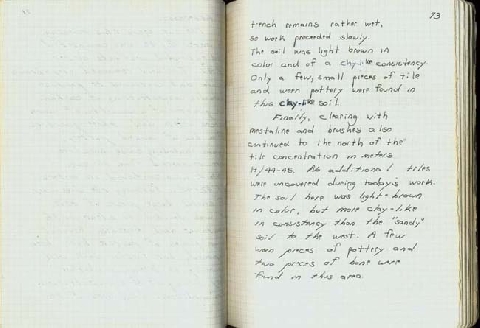 73
trench remains rather wet,
so work proceeded slowly.
The soil was light brown in
color and of a clay-like consistency.
Only a few, small pieces of tile
and worn pottery were found in
this clay-like soil.
Finally, clearing with
and brushes also
continued to the north of the
tile concentration in meters
H/44-45. No additional tiles
were uncovered during today's work.
The soil here was light-brown
in color, but more clay-like
in consistency than the "sandy"
soil to the west. A few
worn pieces of pottery and
two pieces of bone were
found in this area.